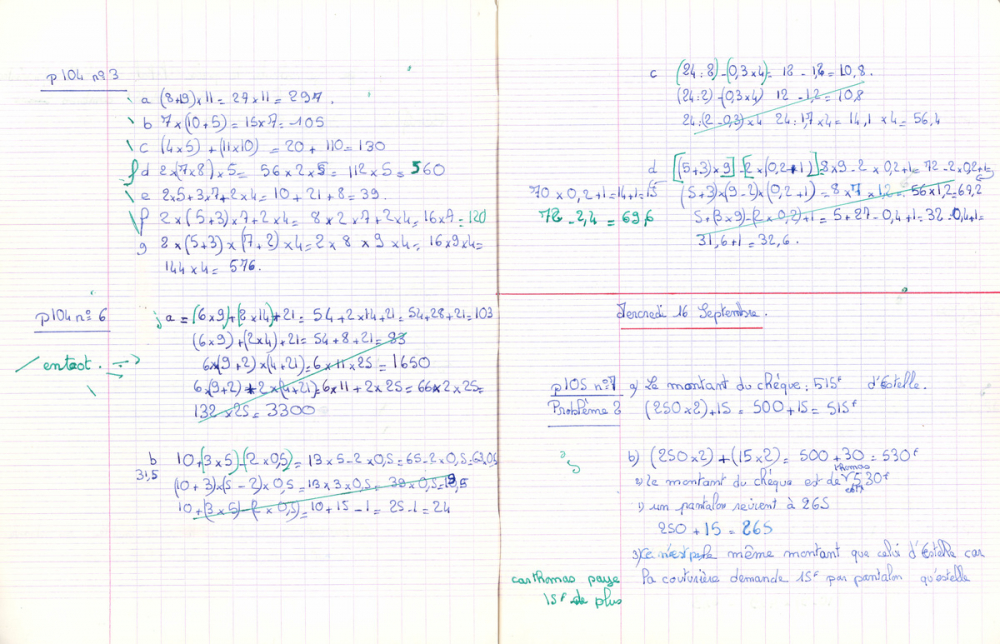 p104 n°3
a (8+19)×11 = 27×11 = 297.
b 7×(10+5) = 15×7 = 105
c (4×5) + (11×10) = 20 + 110 = 130
d 2×(7×8)×5 = 56×2×5 = 112×5 = 560
e 2×5+3×7+2×4 = 10+21+8 = 39.
f 2×(5+3)×7+2×4 = 8×2×7+2×4 = 16×7 = 120
g 2×(5+3)×(7+2)×4 = 2×8×9×4 = 16×9×4 =
144×4 = 576.
p104 n°6
a = (6×9)+(2×14)+21 = 54+2×14+21 = 54+28+21 = 103
(6×9)+(2×4)+21 = 54+8+21 = 83
entest.
6×(9+2)×(4+21) = 6×11×25 = 1650
6×(9+2)+2×(4+21) = 6×11+2×25 = 66×2×25 =
132×25 = 3300
b 10+(3×5)-(2×0,5) = 13×5-2×0,5 = 65-2×0,5 = 63×0,5
31,5
(10+3)×(5-2)×0,5 = 13×3×0,5 = 39×0,5 = 19,5
10+(3×5)-(2×0,5) = 10+15-1 = 25-1 = 24
c (24:2)-(0,3×4) = 12-1,2 = 10,8.
(24:2)-(0,3×4) 12-1,2 = 10,8
24:(2-0,3)×4 24:1,7×4 = 14,1×4 = 56,4
d [(5+3)×9]-[2×(0,2+1)] 8×9-2×0,2+1 = 72-2×0,2+1=
70×0,2+1 = 14+1 = 15
(5+3)×(9-2)×(0,2+1) = 8×7×1,2 = 56×1,2 = 67,2
72-2,4 = 69,6
5+(3×9)-(2×0,2)+1 = 5+27-0,4+1 = 32-0,4+1=
31,6+1 = 32,6.
Mercredi 16 Septembre.
p105 n°7 a) Le montant du chèque : 515F d'Estelle.
Problème 2 (250×2)+15 = 500+15 = 515F
b) (250×2)+(15×2) = 500+30 = 530F
2) Le montant du chèque est de Thomas est 530F
1) un pantalon revient à 265
250+15 = 265
3) Ce n'est pas le même montant que celui d'Estelle car
la couturière demande 15F par pantalon qu'estelle
car Thomas paye
15F de plus